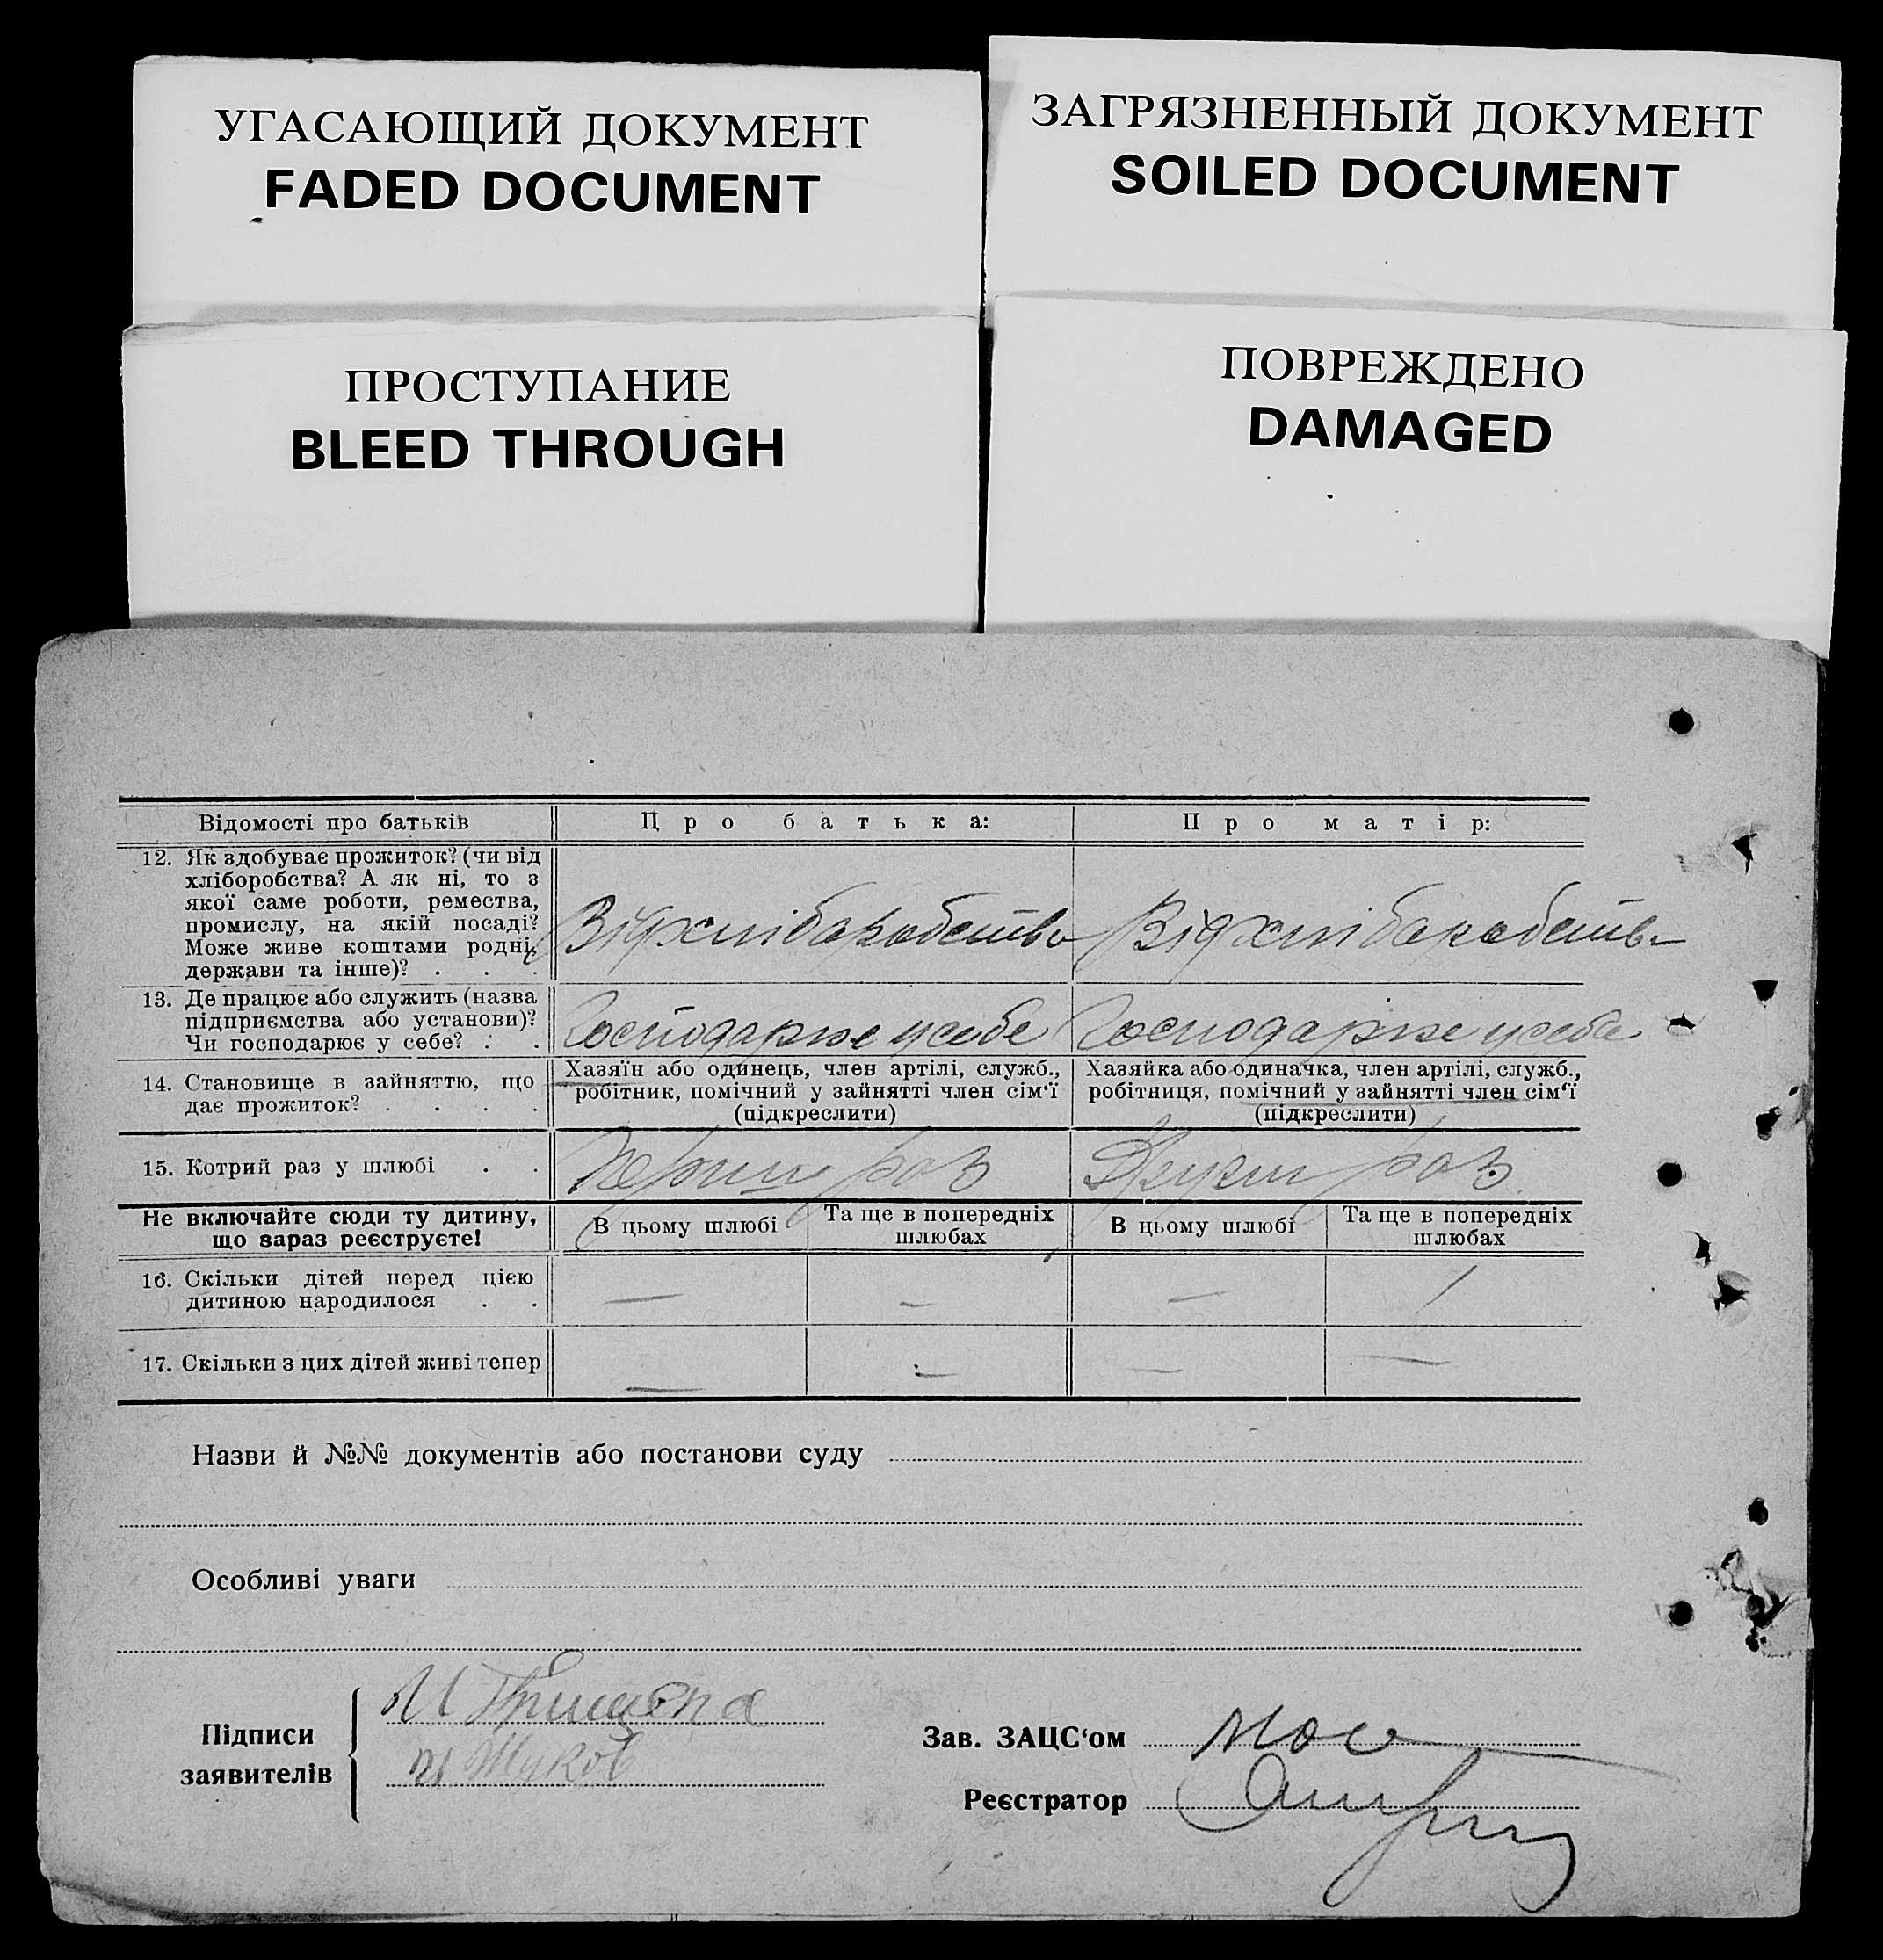 УГАСАЮЩИЙ ДОКУМЕНТ
FADED DOCUMENT
ЗАГРЯЗНЕННЫЙ ДОКУМЕНТ
SOILED DOCUMENT
ПРОСТУПАНИЕ
BLEED THROUGH
ПОВРЕЖДЕНО
DAMAGED
Відомості про батьків
Про батька:
Про матір:
12. Як здобуває прожиток? (чи від
хліборобства? А як ні, то з
якої саме роботи, ремества,
промислу, на якій посаді?
Може живе коштами родні,
держави та інше)? . . .
Від хліборобства
Від хліборобства
13. Де працює або служить (назва
підприємства або установи)?
Чи господарює у себе? . .
Господарює у себе
Господарює у себе
14. Становище в зайняттю, що
дає прожиток? . . . .
Хазяїн або одинець, член артілі, служб.,
робітник, помічний у зайнятті член сім‘ї
(підкреслити)
Хазяйка або одиначка, член артілі, служб.,
робітниця, помічний у зайнятті член сім‘ї
(підкреслити)
15. Котрий раз у шлюбі . .
Перши раз
Други раз
Не включайте сюди ту дитину,
що вараз реєструєте!
В цьому шлюбі
Та ще в попередніх
шлюбах
В цьому шлюбі
Та ще в попередніх
шлюбах
16. Скільки дітей перед цією
дитиною народилося . .
— — — 1
17. Скільки з цих дітей живі тепер
— — — —
Назви й №№ документів або постанови суду
Особливі уваги
Підписи
заявителів
Жуков
Зав. ЗАЦС‘ом
Реєстратор